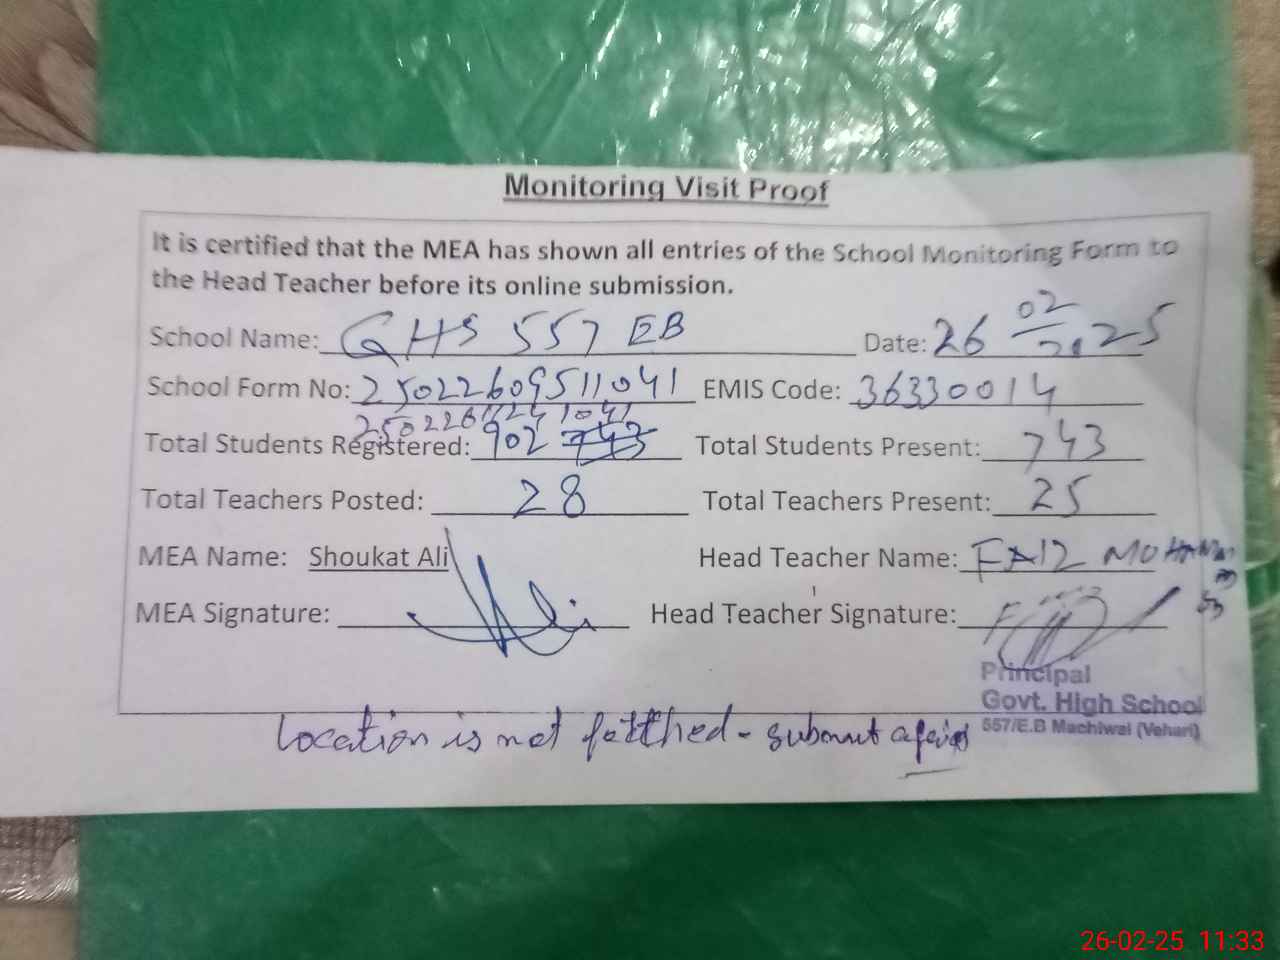 Monitoring Visit Proof
It is certified that the MEA has shown all entries of the School Monitoring Form to
the Head Teacher before its online submission.
School Name: GHS 557 EB Date: 26 02 2025
School Form No: 25022609511041 EMIS Code: 36330014
Total Students Registered: 902 743 Total Students Present: 743
Total Teachers Posted: 28 Total Teachers Present: 25
MEA Name: Shoukat Ali Head Teacher Name: FAIZ MOHAMMAD
MEA Signature: Head Teacher Signature:
Principal
Govt. High School
557/E.B Machiwal (Vehari)
Location is not fetthed - submit again
26-02-25 11:33